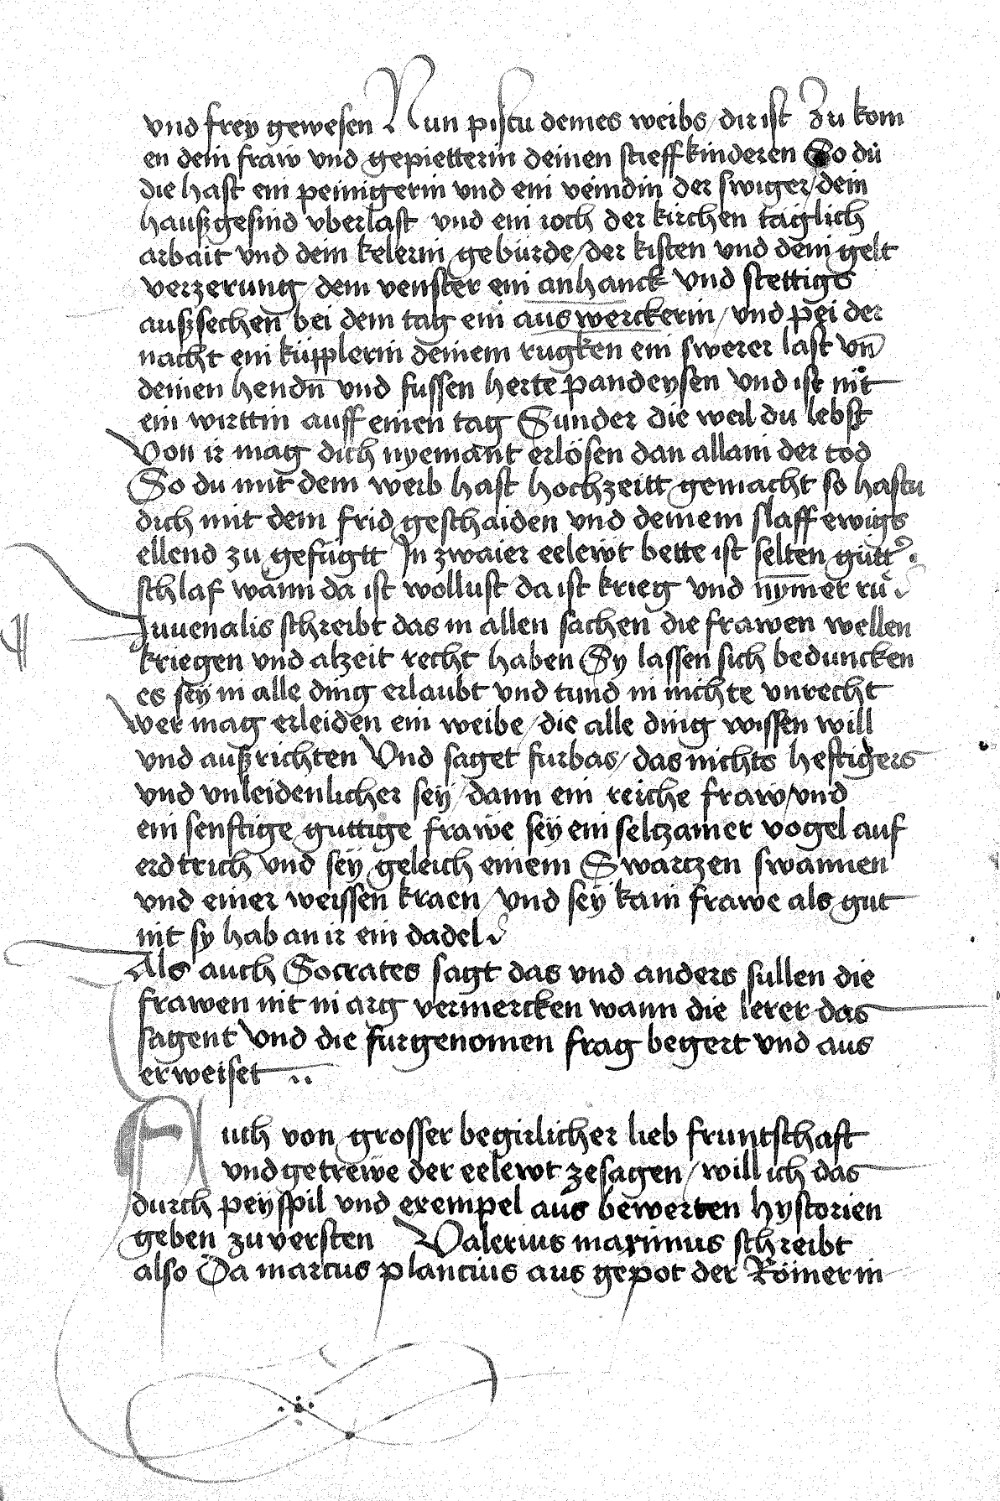 vnd frey gewesen Nun pistu deines weibs / dir ist zu kom
en dein fraw vnd gepietterin deinen stieffkinderen So du
die hast ein peinigerin vnd ein veindin der swiger / dein
haußgesind vberlast vnd ein ioch der kirchen täglich
arbait vnd dein kelerin gebürde / der kisten vnd dem gelt
verzerung / dem venster ein anhanck vnd stettigs
außsechen bei dem tag ein auswerckerin / vnd pei der
nacht ein küpplerin deinem rugken ein swerer last vn̄
deinen hendn̄ vnd fussen herte pandeysen vnd ist nit
ein wirttin auff einen tag Sunder die weil du lebst
Von ir mag dich nyemant erlösen dan allain der tod
So du mit dem weib hast hochzeitt gemacht so hastu
dich mit dem frid geschaiden vnd deinem slaff ewigs
ellend zu gefügtt In zwaier eelewt bette ist selten gutt᾿
schlaf wann da ist wollust da ist krieg vnd nymer ru
Iuuenalis schreibt das in allen sachen die frawen wellen
kriegen vnd alzeit recht haben Sy lassen sich beduncken
es sey in alle ding erlaubt vnd tund in nichte vnrecht
wer mag erleiden ein weibe / die alle ding wissen will
vnd außrichten Vnd saget furbas / das nichts heftigers
vnd vnleidenlicher sey / dann ein reiche fraw / vnd
ein senftige guttige frawe sey ein seltzamer vogel auf
erdtrich vnd sey geleich einem Swartzen swannen
vnd einer weissen kraen / vnd sey kain frawe als gut
nit sy hab an ir ein dadel
Als auch Socrates sagt das vnd anders sullen die
frawen nit in arg vermercken wann die lerer das
sagent Vnd die furgenomen frag begert vnd aus
erweiset
Auch von grosser begirlicher lieb fruntschaft
vnd getrewe der eelewt zesagen / will ich das
durch peyspil vnd exempel aus bewerten hystorien
geben zu versten Valerius maximus schreibt
also Da marcus plancius aus gepot der Römer in